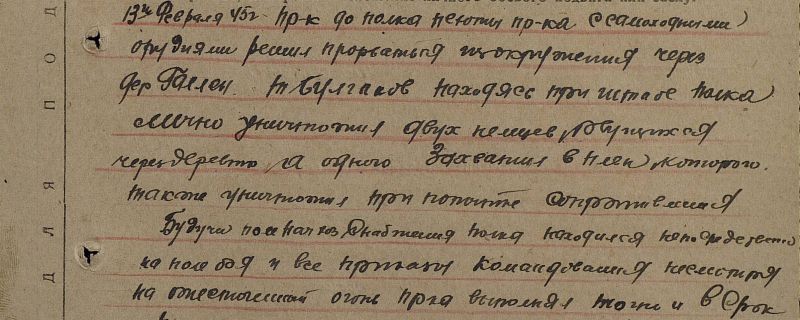 13го Февраля 45г. пр-к до полка пехоты пр-ка с самоходными
орудиями решил прорваться из окружения через
дер. т Булгаков находясь при штабе полка
лично уничтожил двух немцев рвущихся
через деревню, а одного захватил в плен, которого
также уничтожил при попытке сопротивления
Будучи пом нач снабжения полка находился непосредственно
на поле боя и все приказы командования несмотря
на ожесточенный огонь пр-ка выполнял точно и в срок
ДЛЯ ПОД